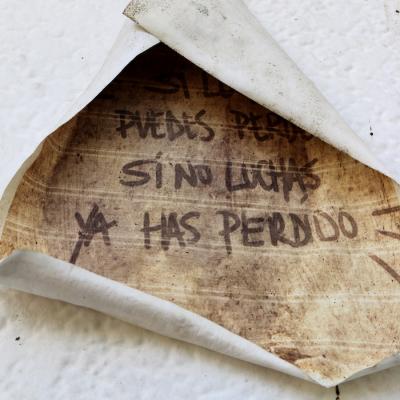 SI LU
PUEDES PERD
SI NO LUCHAS
YA HAS PERDIDO